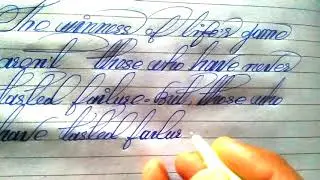 The winners of life's game
aren't those who have never
tasted failure. But, those who
have tasted failur